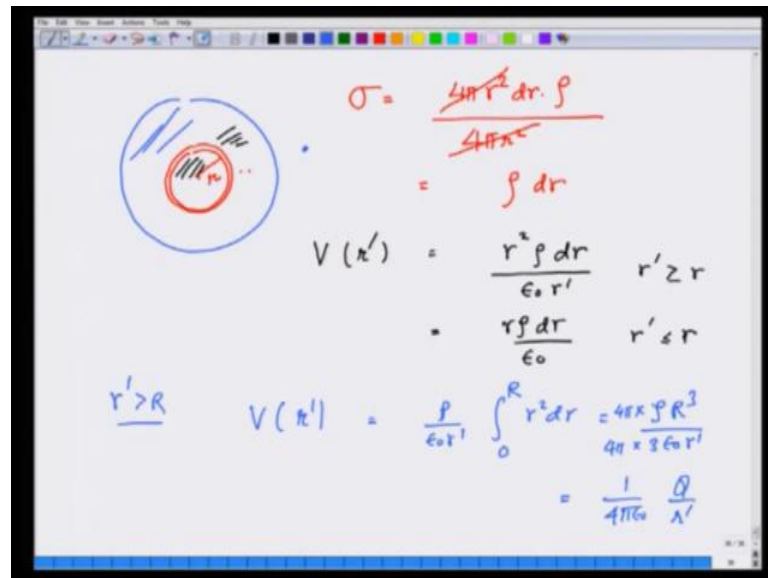 File Edit View Insert Actions Tools Help
σ = 4πr² dr. ρ / 4πr²
r
= ρ dr
V(r') = r² ρ dr / ε₀ r' r' ≥ r
= rρ dr / ε₀ r' ≤ r
r' > R V(r') = ρ / ε₀r' ∫₀ᴿ r² dr = 4π × ρ R³ / 4π × 3 ε₀ r'
= 1 / 4πε₀ Q / r'